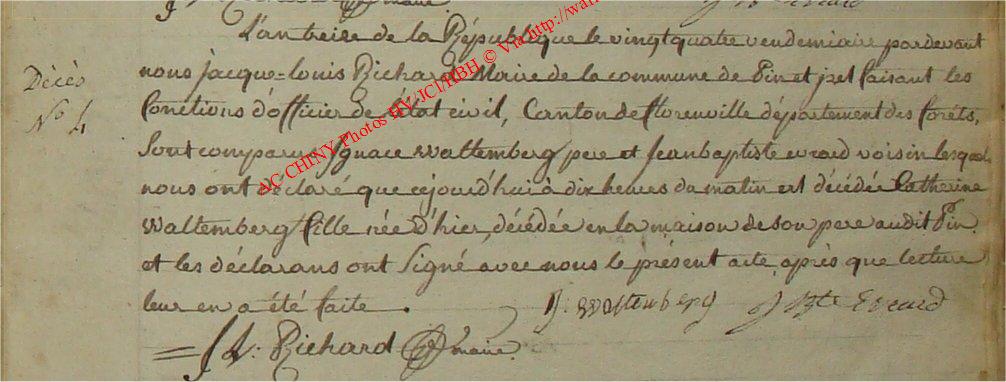 maire.
L'an treize de la République le vingt quatre vendemiaire pardevant
Décès
nous jacque-louis Richard Maire de la commune de Pin et jzel faisant les
N° 4
fonctions d'officier de l'état civil, Canton de florenville département des forêts,
Sont comparus Ignace Waltemberg pere et Jean baptiste evrard voisin lesquels
nous ont déclaré que cejourd'hui à dix heures du matin est décédée Catherine
Waltemberg fille née d'hier, décédée en la maison de son pere audit Pin.
et les déclarans ont Signé avec nous le présent acte, après que lecture
leur en a été faite.
J. Waltenberg J Bte Evrard
J L: Richard maire.
AC CHINY Photos HY/JCI/RBH © Via http://